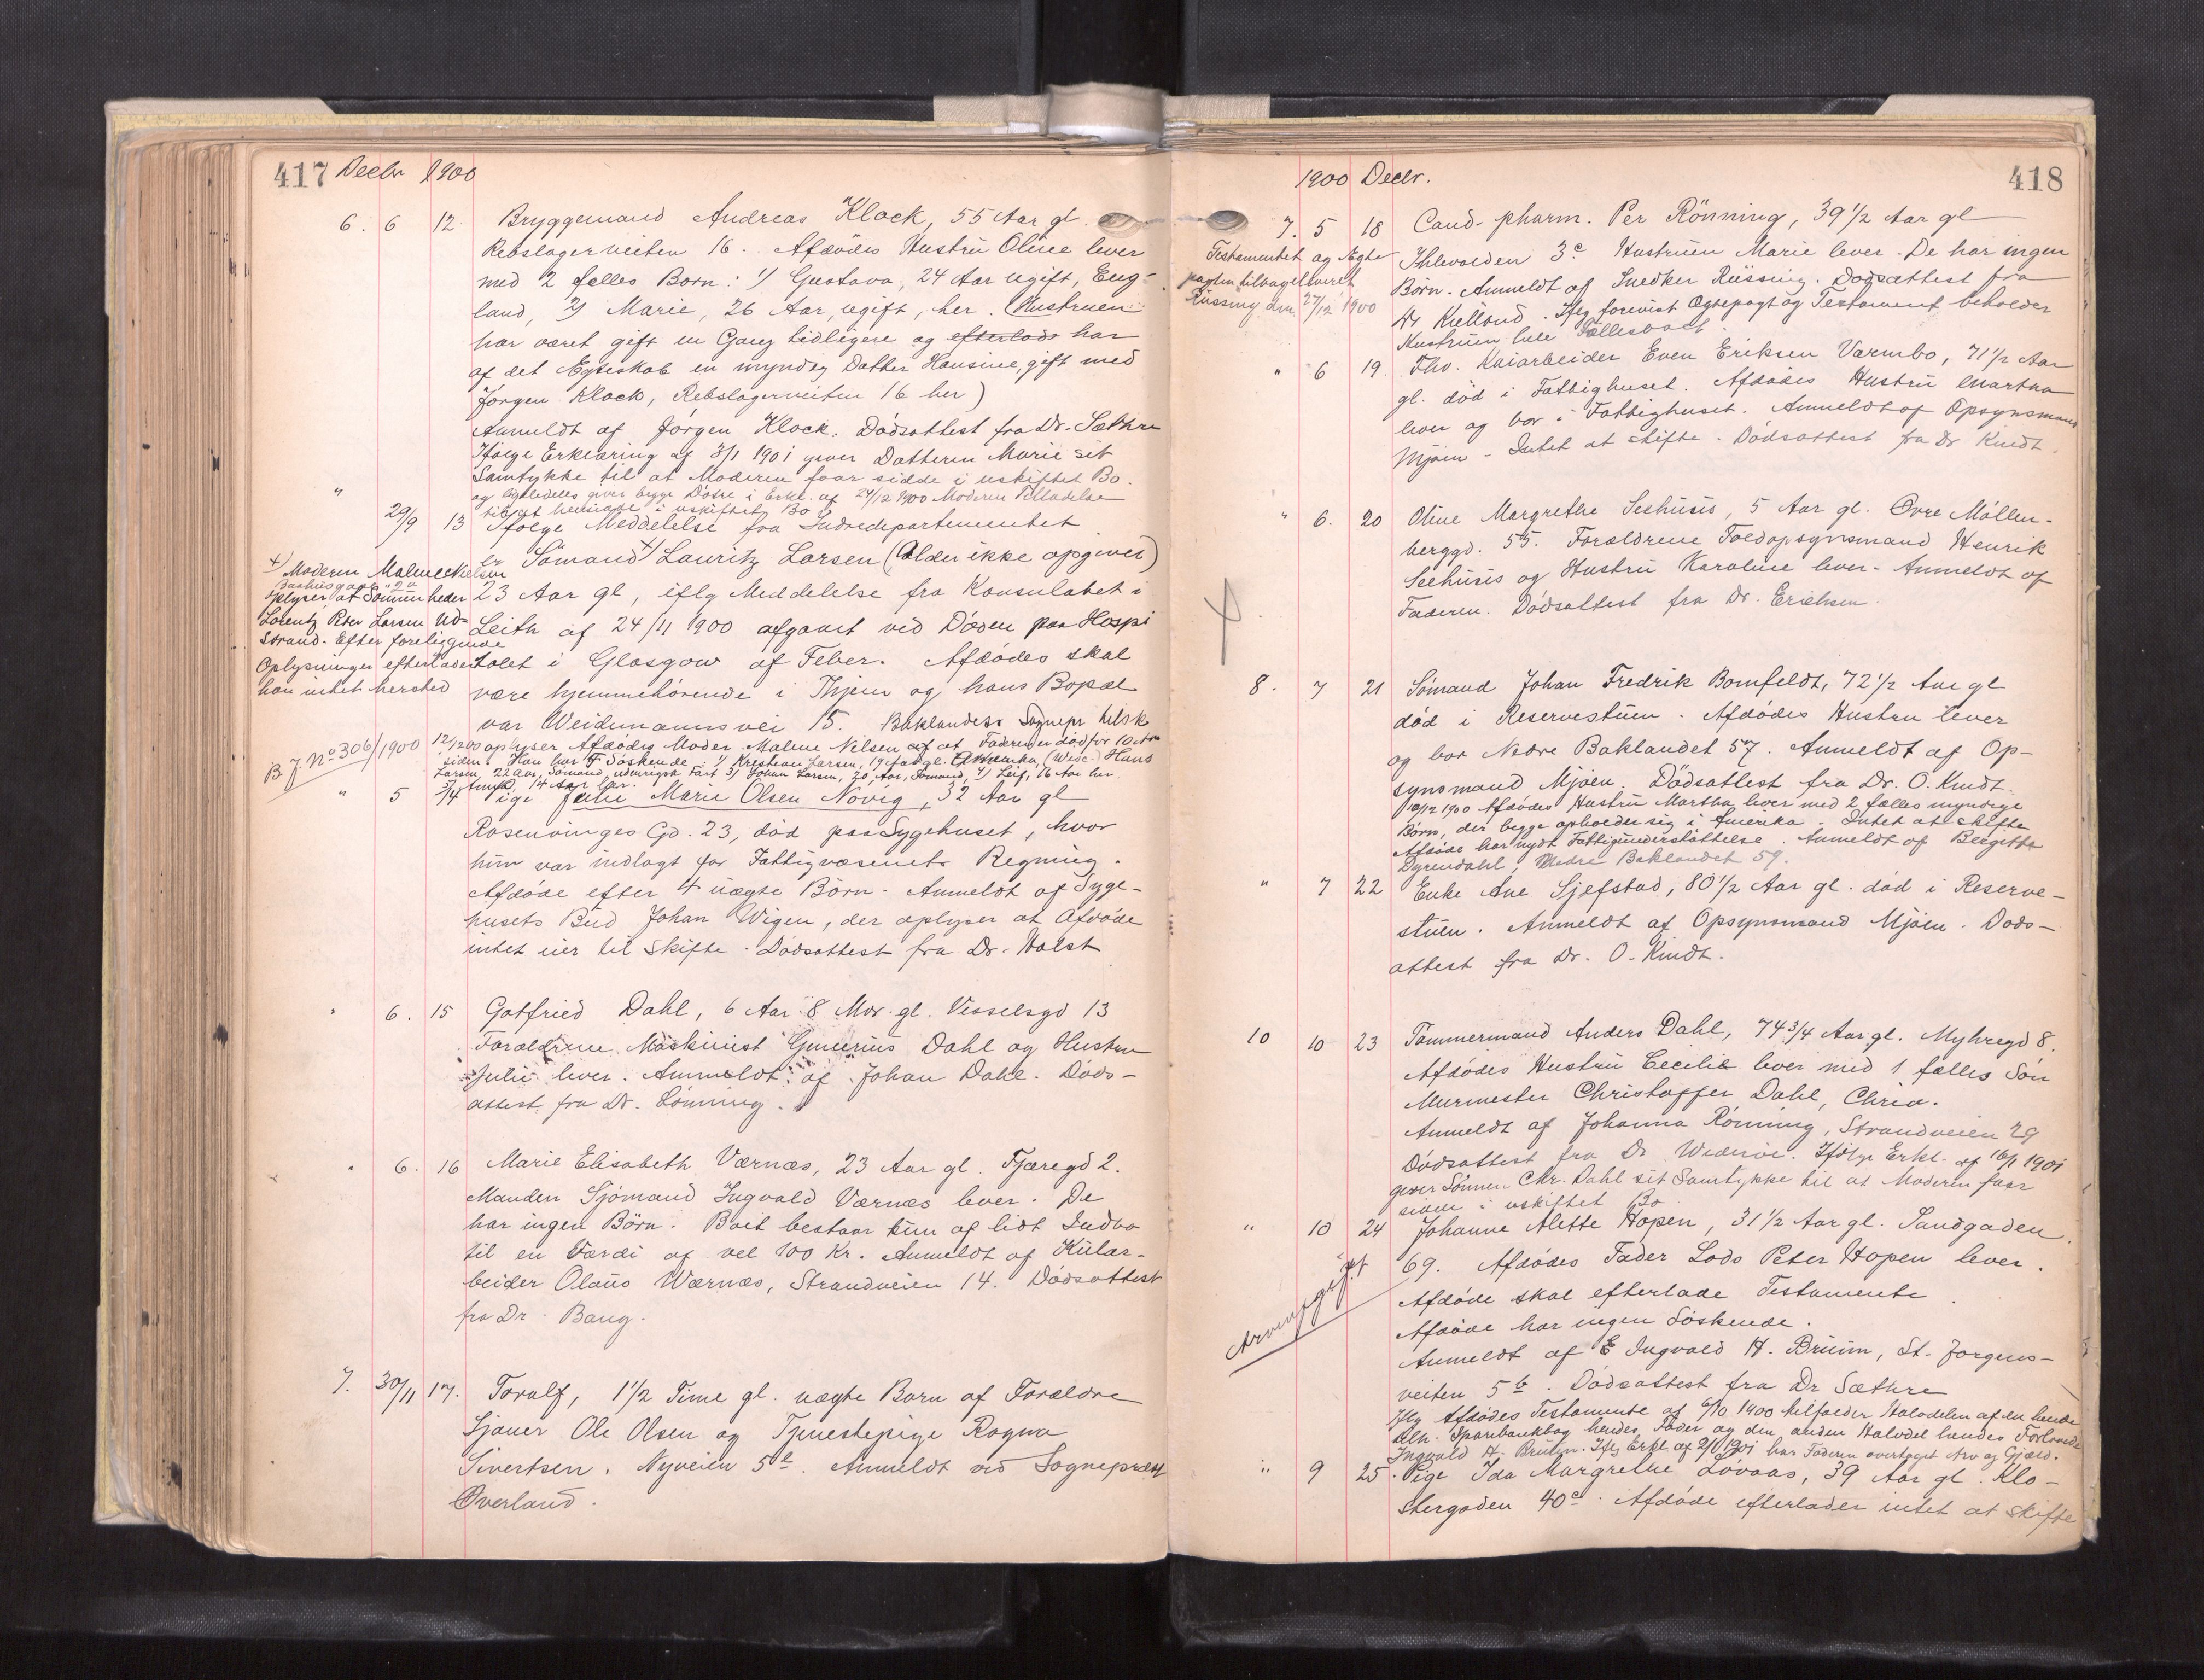 417 Decbr 1900
6. 6 12 Bryggemand Andreas Klock, 55 Aar gl.
Rebslagerveiten 16. Afdødes Hustru Oline lever
med 2 fælles Børn: 1) Gustava, 24 Aar ugift, Eng-
land, 2) Marie, 26 Aar, ugift, her. (Hustruen
har været gift en Gang tidligere og efterlod har
af det Ægteskab en myndig Datter Hansine, gift med
Jørgen Klock, Rebslagerveiten 16 her)
Anmeldt af Jørgen Klock. Dødsattest fra Dr. Sæthre
Ifølge Erklæring af 3/1 1901 giver Datteren Marie sit
Samtykke til at Moderen faar sidde i uskiftet Bo.
og ligeledes giver begge Døtre i Erkl. af 24/12 1900 Moderen Tilladelse
til at hensidde i uskiftet Bo
" 29/9 13 Ifølge Meddelelse fra Indredepartementet
er Sømand +) Lauritz Larsen (Alder ikke opgivet)
23 Aar gl, iflg Meddelelse fra Konsulatet i
Leith af 24/11 1900 afgaaet ved Døden paa Hospi
talet i Glasgow af Feber. Afdødes skal
være hjemmehørende i Thjem og hans Bopæl
var Weidemannsvei 15. Baklandets Sognepr
12/12 00 oplyser Afdødes Moder Malene Nilsen af at Faderen er død for 10 Aar
siden. Han har 5 Søskende: 1) Kristian Larsen, 19 Aar gl. Amerika, Hans
Larsen, 22 Aar, Sømand, udenrigsk Fart 3) Johan Larsen, 20 Aar, Sømand, 4) Leif, 16 Aar her
14 Aar her.
+) Moderen Malene Nielsen
Baahusgaden 2a
oplyser at Sønnen heder
Lorentz Peter Larsen Ud-
Strand. Efter foreliggende
Oplysninger efterlader
han intet hersted
B J. No 306/1900
" 5 14 Pige Julie Marie Olsen Novig, 32 Aar gl
Rosenvinges Gd. 23, død paa Sygehuset, hvor
hun var indlagt for Fattigvæsenets Regning.
Afdøde efter 4 uægte Børn. Anmeldt af Syge-
husets Bud Johan Wigen, der oplyser at Afdøde
intet eier til Skifte. Dødsattest fra Dr. Holst
" 6. 15 Gotfried Dahl, 6 Aar 8 Mdr. gl. Visselsgd 13
Forældrene Maskinist Gunerius Dahl og Hustru
Julie lever. Anmeldt af Johan Dahl. Døds-
attest fra Dr. Lønning.
" 6. 16 Marie Elisabeth Værnæs, 23 Aar gl. Fjæregd 2.
Manden Sjømand Ingvald Værnæs lever. De
har ingen Børn. Boet bestaar kun af lidt Indbo
til en Værdi af vel 100 Kr. Anmeldt af Kular-
beider Olaus Wærnæs, Strandveien 14. Dødsattest
fra Dr. Bang.
7. 30/11 17. Toralf, 1 1/2 Time gl. uægte Barn af Forældre
Sjauer Ole Olsen og Tjenestepige Ragna
Sivertsen, Nyveien 5 b. Anmeldt ved Sogneprest
Øverland.
1900 Decbr. 418
7. 5 18 Cand. pharm. Per Rönning, 39 1/2 Aar gl
Ihlevolden 3 c Hustruen Marie lever. De har ingen
Børn. Anmeldt af Snedker Rüssing. Dødsattest fra
Dr Kielland. Iflg forevist Ægtepagt og Testament beholder
Hustruen hele Fællesboet.
Testamentet og Ægte
pagten tilbageleveret
Rüssing den 27/12 1900
" 6 19. Fhv. Kaiarbeider Even Eriksen Varmbo, 71 1/2 Aar
gl. død i Fattighuset. Afdødes Hustru Martha
lever og bor i Fattighuset. Anmeldt af Opsynsmand
Mjøen - Intet at skifte. Dødsattest fra Dr Kindt.
" 6. 20 Oline Margrethe Seehusis, 5 Aar gl. Øvre Møllen-
berggd. 55. Forældrene Toldopsynsmand Henrik
Seehusis og Hustru Karoline lever. Anmeldt af
Faderen. Dødsattest fra Dr. Erichsen.
8. 7 21 Sømand Johan Fredrik Bomfeldt, 72 1/2 Aar gl
død i Reservestuen. Afdødes Hustru lever
og bor Nedre Baklandet 57. Anmeldt af Op-
synsmand Mjøen. Dødsattest fra Dr. O. Kindt.
10/12 1900 Afdødes Hustru Martha lever med 2 fælles myndige
Børn, der begge opholder sig i Amerika. Intet at skifte
Afdøde har nydt Fattigunderstøttelse. Anmeldt af Bergitte
Dyrendahl, Nedre Baklandet 59.
" 7 22 Enke Ane Sjefstad, 80 1/2 Aar gl. død i Reserve-
stuen. Anmeldt af Opsynsmand Mjøen. Døds-
attest fra Dr. O. Kindt.
10 10 23 Tømmermand Anders Dahl, 74 3/4 Aar gl. Myhregd 8.
Afdødes Hustru Cecilie lever med 1 fælles Søn
Murmester Christoffer Dahl, Chria.
Anmeldt af Johanna Rönning, Strandveien 29
Dødsattest fra Dr Widerøe. Ifølge Erkl. af 16/1 1901
giver Sønnen Chr. Dahl sit Samtykke til at Moderen faar
sidde i uskiftet Bo
" 10 24 Johanne Alette Hopen, 31 1/2 Aar gl. Sandgaden
69. Afdødes Fader Lods Peter Hopen lever.
Afdøde skal efterlade Testamente.
Afdøde har ingen Søskende.
Anmeldt af E Ingvald H. Bruun, St. Jørgens-
veiten 5 b. Dødsattest fra Dr Sæthre
Iflg Afdødes Testamente af 6/10 1900 tilfalder Halvdelen af en hende
tilh. Sparebankbog hendes Fader og den anden Halvdel hendes Forlovede
Ingvald H. Bruun. Iflg Erkl. af 2/1 1901 har Faderen overtaget Arv og Gjæld.
Arveafgift
" 9 25. Pige Ida Margrethe Løvaas, 39 Aar gl. Klo-
stergaden 40 c. Afdøde efterlader intet at skifte